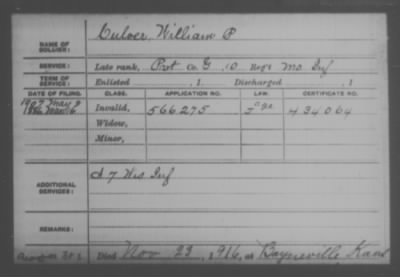 NAME OF SOLDIER: Culver, William P
SERVICE: Late rank, Pvt Co. G, 10 Reg't Mo Inf
TERM OF SERVICE: Enlisted , 1 . Discharged , 1
DATE OF FILING. CLASS. APPLICATION NO. LAW. CERTIFICATE NO.
1907 May 9
Invalid, 566275 434064
Widow,
Minor,
ADDITIONAL SERVICES: A 7 Wis Inf
REMARKS:
Died Nov 23, 1916, at Bayneville Kans